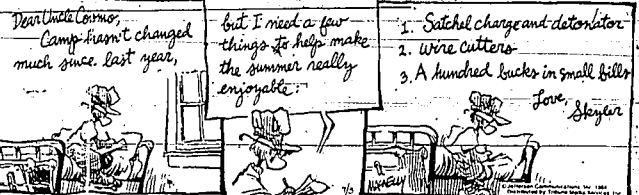 Dear Uncle Cosmo,
Camp hasn't changed
much since last year,
but I need a few
things to help make
the summer really
enjoyable:
1. Satchel charge and detonator
2. wire cutters
3. A hundred bucks in small bills
Love,
Skyler
7/3
MACNELLY
© Jefferson Communications, Inc. 1984
Distributed by Tribune Media Services, Inc.